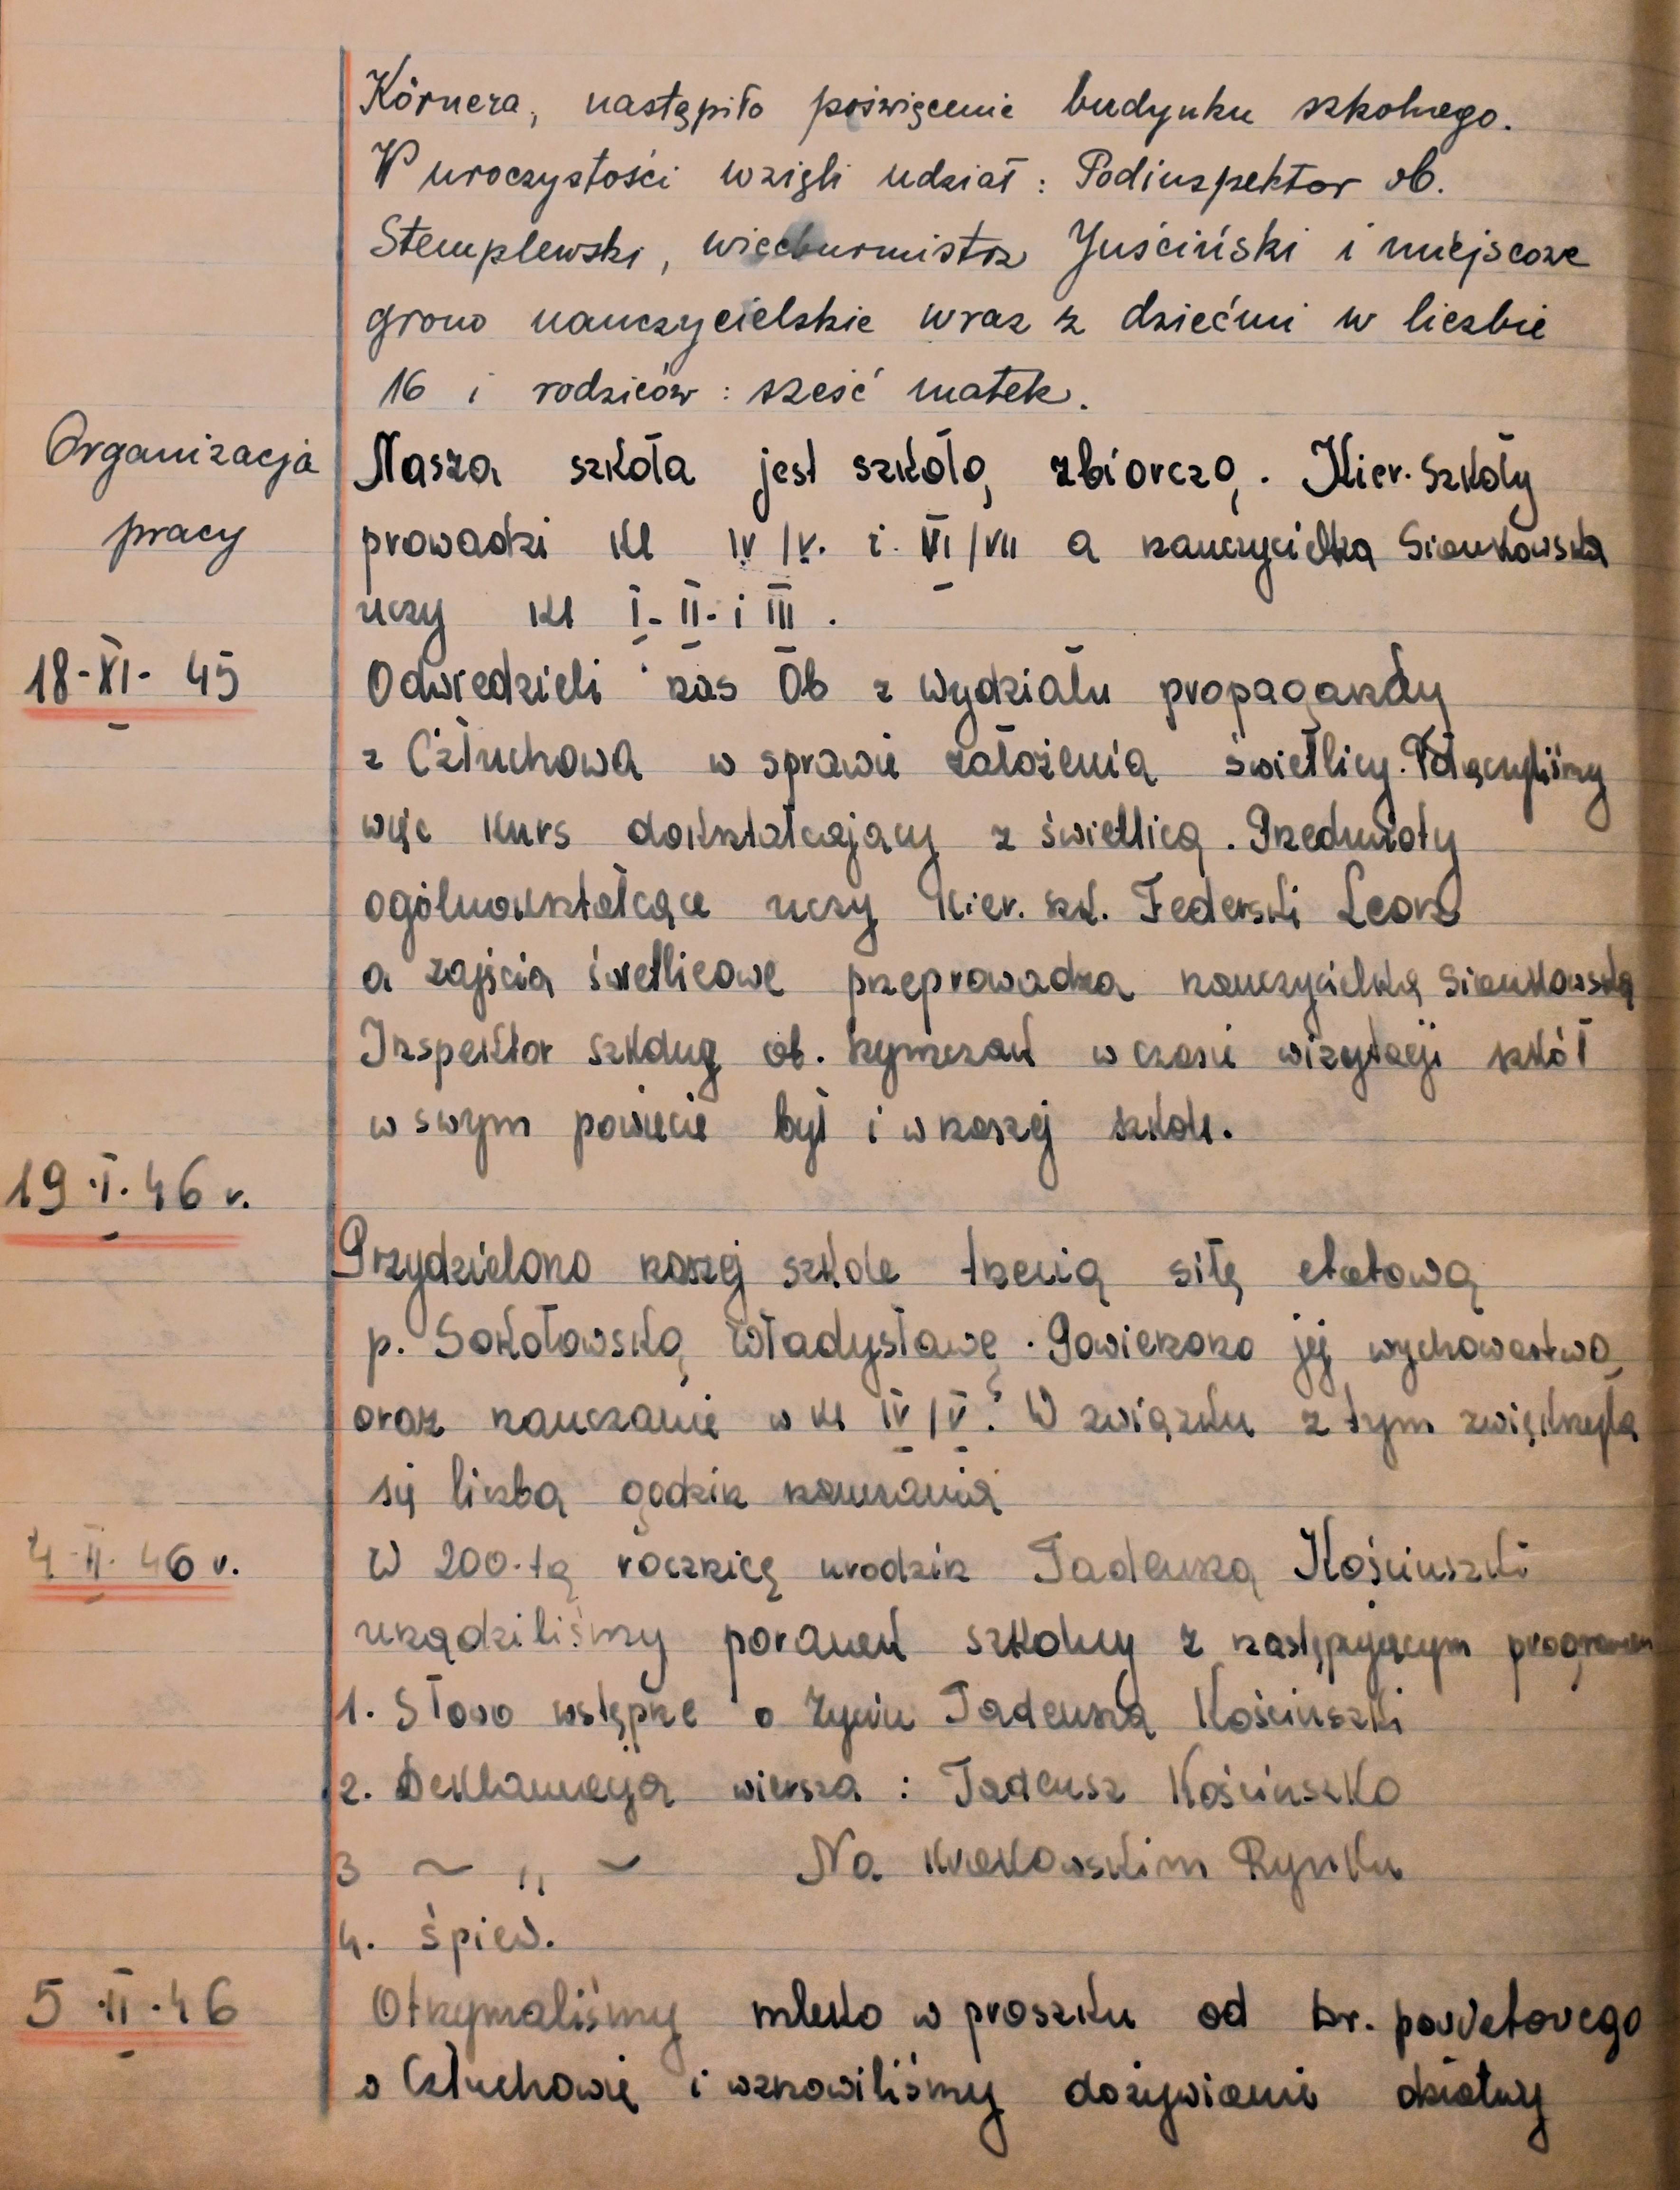 Körnera, nastąpiło poświęcenie budynku szkolnego.
W uroczystości wzięli udział: Podinspektor ob.
Stemplewski, wiceburmistrz Juściński i miejscowe
grono nauczycielskie wraz z dziećmi w liczbie
16 i rodziców: sześć matek.
Organizacja
pracy
Nasza szkoła jest szkołą zbiorczą. Kier. Szkoły
prowadzi Kl IV/V. i VI/VII a nauczycielka Sienkowska
uczy Kl I-II-i III.
18-XI-45
Odwiedzieli nas Ob z wydziału propagandy
z Człuchowa w sprawie założenia świetlicy. Połączyliśmy
więc kurs dokształcający z świetlicą. Przedmioty
ogólnokształcące uczy Kier. szk. Federski Leon
a zajęcia świetlicowe przeprowadza nauczycielka Sienkowska
Inspektor szkolny ob. w czasie wizytacji szkół
w swym powiecie był i w naszej szkole.
19.I.46 r.
Przydzielono naszej szkole trzecią siłę etatową
p. Sokołowską Władysławę. Powierzono jej wychowastwo
oraz nauczanie w kl IV/V. W związku z tym zwiększyła
się liczba godzin nauczania
4-II-46 r.
W 200-tą rocznicę urodzin Tadeusza Kościuszki
urządziliśmy poranek szkolny z następującym programem
1. Słowo wstępne o życiu Tadeusza Kościuszki
2. Deklamacja wiersza: Tadeusz Kościuszko
3 ~ ,, ~ Na Krakowskim Rynku
4. śpiew.
5.II.46
Otrzymaliśmy mleko w proszku od powiatowego
w Człuchowie i wznowiliśmy dożywianie dziatwy